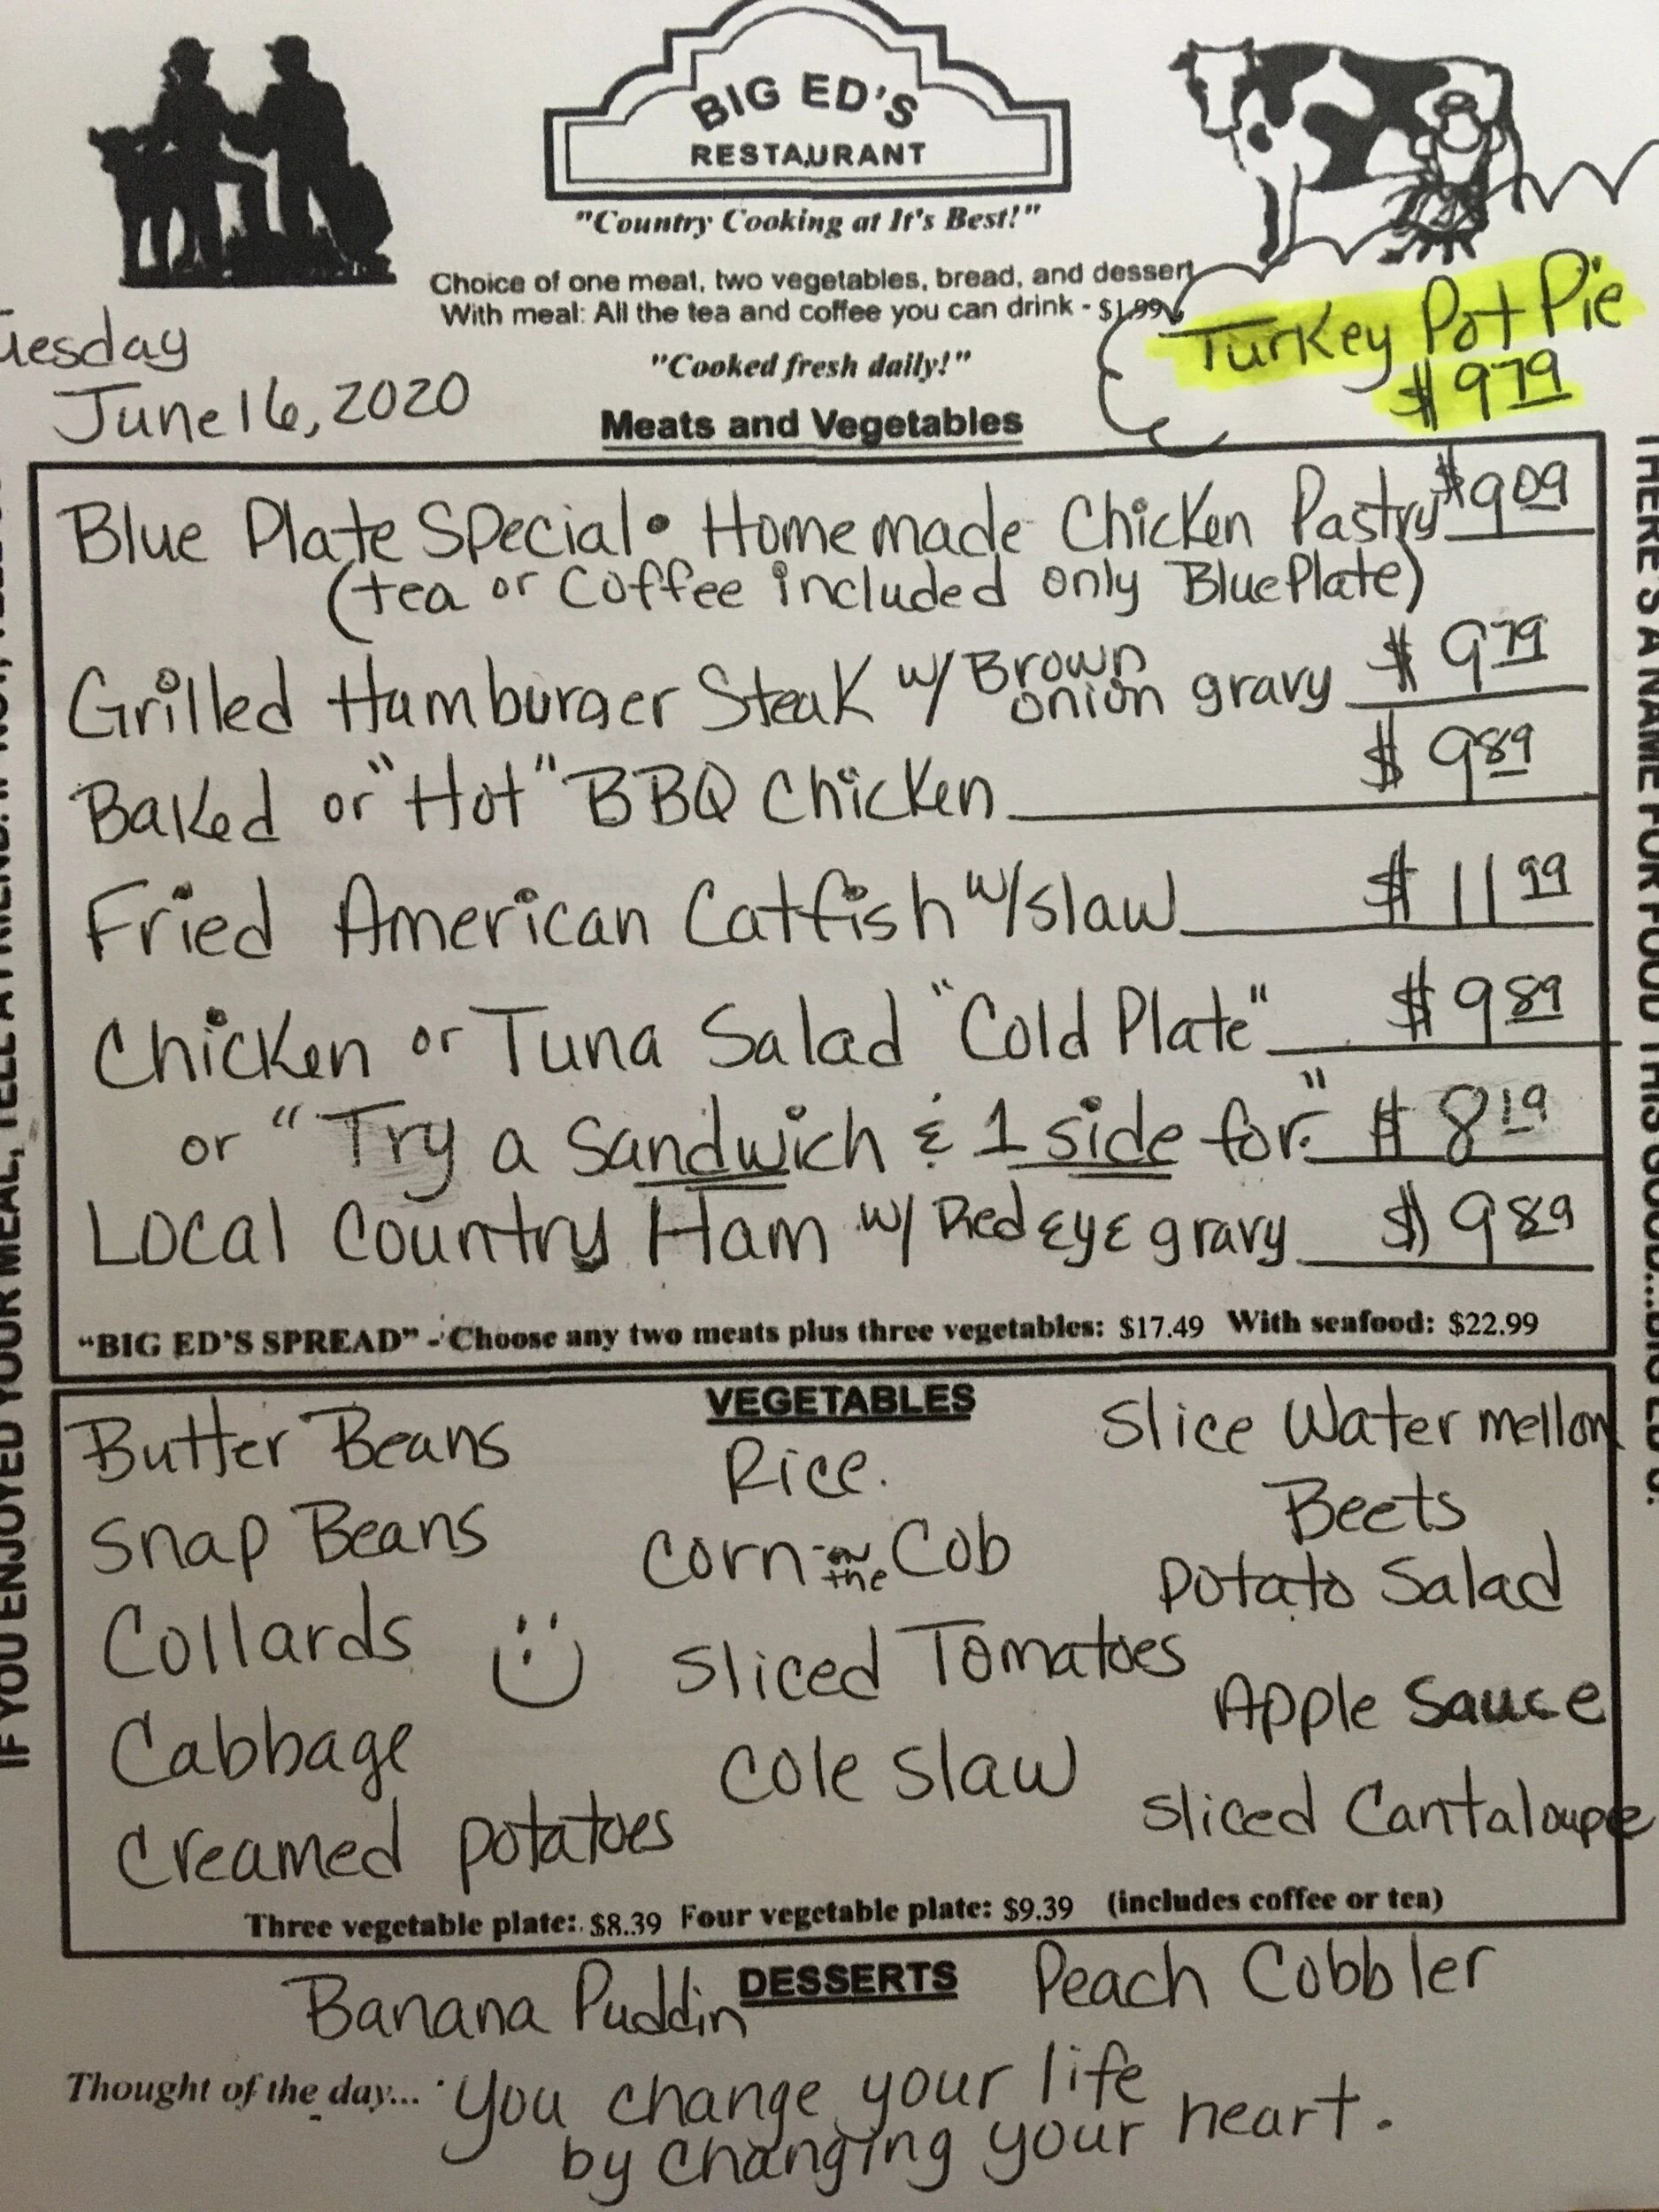 BIG ED'S
RESTAURANT
"Country Cooking at It's Best!"
Choice of one meat, two vegetables, bread, and dessert
With meal: All the tea and coffee you can drink - $1.99
"Cooked fresh daily!"
uesday
June 16, 2020
Turkey Pot Pie
$9 79
Meats and Vegetables
Blue Plate Special • Homemade Chicken Pastry $9 09
(tea or coffee included only Blue Plate)
Grilled Hamburger Steak w/ Brown onion gravy $9 79
Baked or "Hot" BBQ Chicken $9 89
Fried American Catfish w/slaw $11 99
Chicken or Tuna Salad "Cold Plate" $9 89
or "Try a Sandwich & 1 side for." $8 19
Local Country Ham w/ Red Eye gravy $9 89
"BIG ED'S SPREAD" - Choose any two meats plus three vegetables: $17.49 With seafood: $22.99
VEGETABLES
Butter Beans
Snap Beans
Collards
Cabbage
Creamed potatoes
Rice.
Corn-on the Cob
Sliced Tomatoes
Cole Slaw
Slice Water mellon
Beets
Potato Salad
Apple Sauce
Sliced Cantaloupe
Three vegetable plate: $8.39 Four vegetable plate: $9.39 (includes coffee or tea)
DESSERTS
Banana Puddin
Peach Cobbler
Thought of the day... You change your life
by changing your heart.
IF YOU ENJOYED YOUR MEAL, TELL A FRIEND.
THERE'S A NAME FOR FOOD THIS GOOD...BIG ED'S.